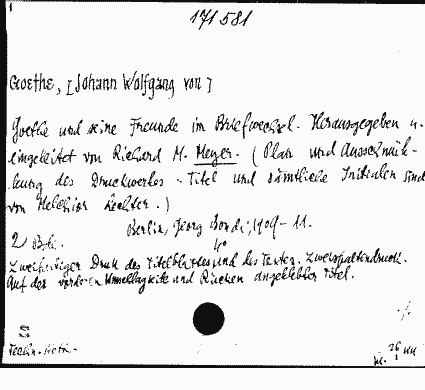 171581
Goethe, [Johann Wolfgang von]
Goethe und seine Freunde im Briefwechsel. Herausgegeben u.
eingeleitet von Richard M. Meyer. (Plan und Ausschmük-
kung des Druckwerkes. Titel und sämtliche Initialen sind
von Melchior Lechter.)
Berlin, Georg Bondi; 1909-11.
2 Bde. 4°
Zweifarbiger Druck des Titelblattes und des Textes. Zweispaltendruck.
Auf der vorderen Umschlagseite und Rücken angeklebter Titel.
S